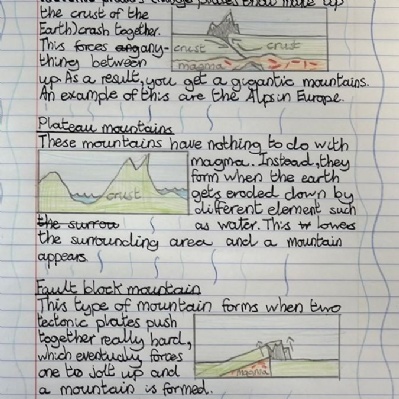 plates that make up
the crust of the
Earth crash together.
This forces any-
thing between
up. As a result, you get a gigantic mountains.
An example of this are the Alps in Europe.
crust
crust
magma
Plateau mountains
These mountains have nothing to do with
magma. Instead, they
form when the earth
gets eroded down by
different element such
the surrou as water. This lowers
the surrounding area and a mountain
appears
crust
Fault block mountain
This type of mountain forms when two
tectonic plates push
together really hard,
which eventually forces
one to jolt up and
a mountain is formed.
magma